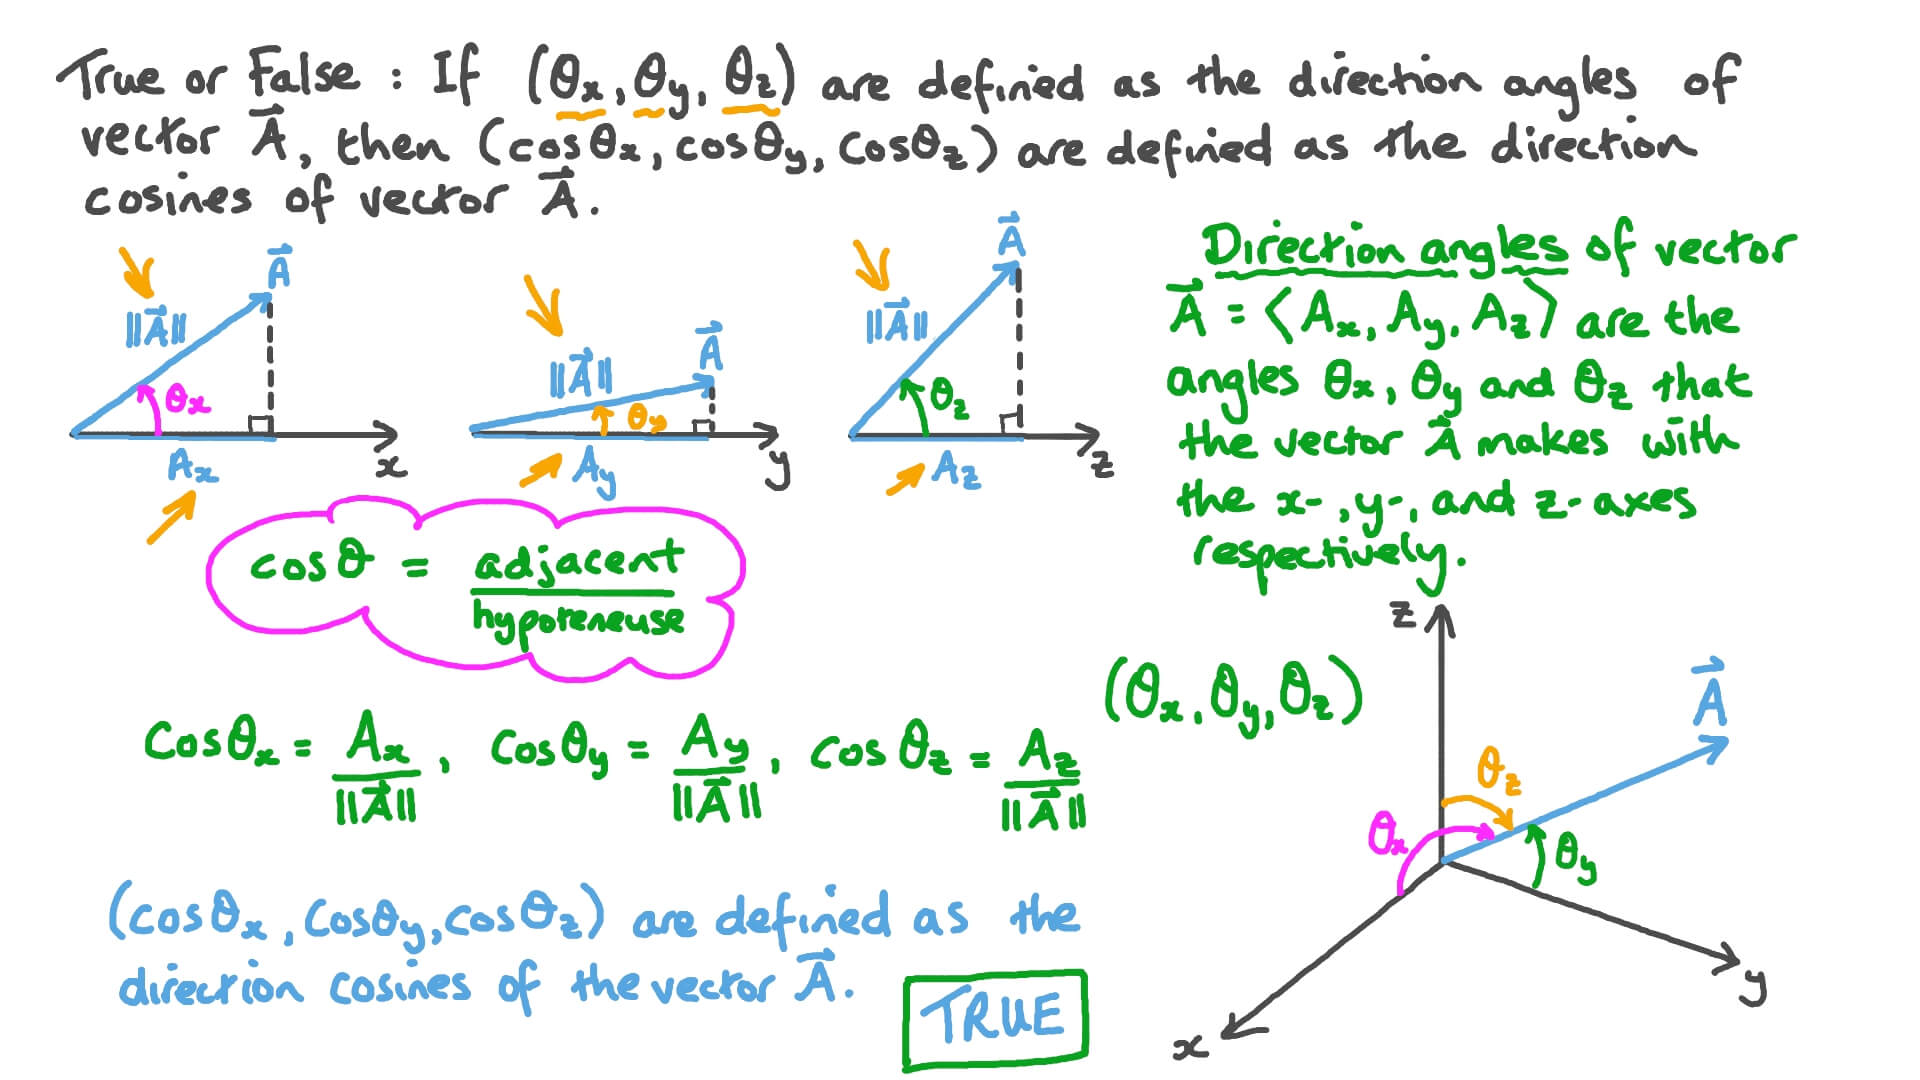 True or False : If (θx, θy, θz) are defined as the direction angles of
vector A⃗, then (cosθx, cosθy, cosθz) are defined as the direction
cosines of vector A⃗.
A⃗
||A⃗||
θx
Ax
x
A⃗
||A⃗||
θy
Ay
y
A⃗
||A⃗||
θz
Az
z
Direction angles of vector
A⃗ = ⟨Ax, Ay, Az⟩ are the
angles θx, θy and θz that
the vector A⃗ makes with
the x-, y-, and z-axes
respectively.
cosθ = adjacent
hypoteneuse
Cosθx = Ax/||A⃗||, cosθy = Ay/||A⃗||, cosθz = Az/||A⃗||
(θx, θy, θz)
z
A⃗
θz
θx
θy
y
x
(cosθx, cosθy, cosθz) are defined as the
direction cosines of the vector A⃗.
TRUE